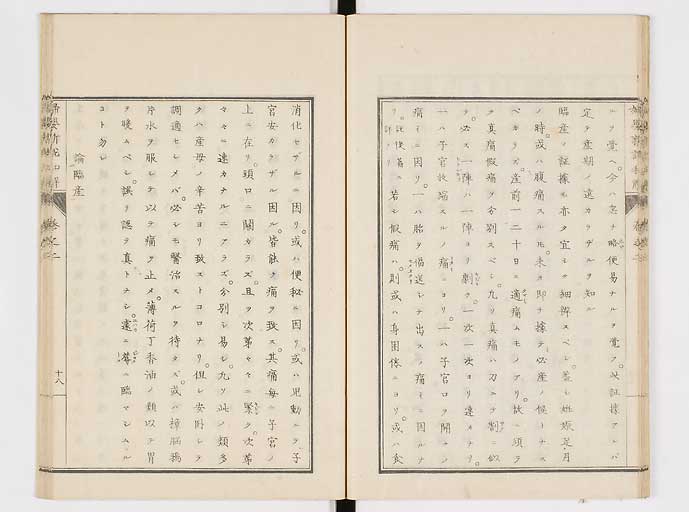 ルヲ覺ヘ。今ハ忽チ略便易ナルヲ覺フ。此証據アレバ
定テ産期ノ遠カラザルヲ知ル
臨産ノ証據モ亦タ宜シク細辨スベシ。蓋シ妊娠足月
ノ時。或ハ腹痛スルモ。未タ即チ據テ必産ノ候トナス
ベカラズ。産前一二十日ニ適痛ムモノアリ。故ニ須ラ
ク真痛假痛ヲ分別スベシ。凡ソ真痛ハ刀ニテ割ニ似
タリ。必ス一陣ハ一陣ヨリ劇ク。一次ハ一次ヨリ速ナリ。
一ハ子宮收縮スルノ痛ニヨリ。一ハ子宮口ヲ開クノ
痛ニ因リ。一ハ胎ヲ偪送シテ出スノ痛ニ因ルナ
リ。若シ假痛ハ。則或ハ身困倦ニヨリ。或ハ食
消化セザルニ因リ。或ハ便秘ニ因リ。或ハ兒動ニテ。子
宮安カラザルニ因ル。皆能ク痛ヲ致ス。其痛毎ニ子宮ノ
上ニ在リ。頸口ニ關カラズ。且ツ次第々々ニ緊ク。次第
々々ニ速カナルニアラズ。分別シ易シ。凡ソ此ノ類多
クハ産母ノ辛苦ヨリ致ストコロナリ。但シ安卧シテ
調適セシメバ。必シモ醫治スルヲ待タズ。或ハ樟腦鴉
片水ヲ服シテ以テ痛ヲ止メ。薄荷丁香油ノ類以テ胃
ヲ暖ムベシ。誤リ認テ真トナシ。遽ニ蓐ニ臨マシムル
コト勿レ
論臨産
卷之二
十八